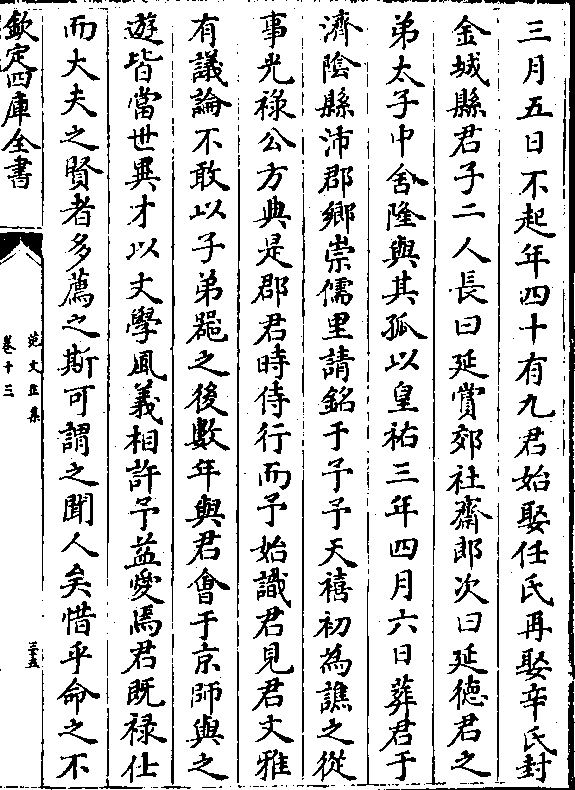 三月五日不起年四十有九君始娶任氏再娶辛氏封
金城縣君子二人長曰延賞郊社齋郎次曰延德君之
弟太子中舍隆與其孤以皇祐三年四月六日葬君于
濟陰縣沛郡鄉崇儒里請銘于予予天禧初為譙之從
事光禄公方典是郡君時侍行而予始識君見君文雅
有議論不敢以子弟器之後數年與君會于京師與之
遊皆當世異才以文學風義相許予益愛焉君既禄仕
而大夫之賢者多薦之斯可謂之聞人矣惜乎命之不
欽定四庫全書
范文正集
卷十三
三十五